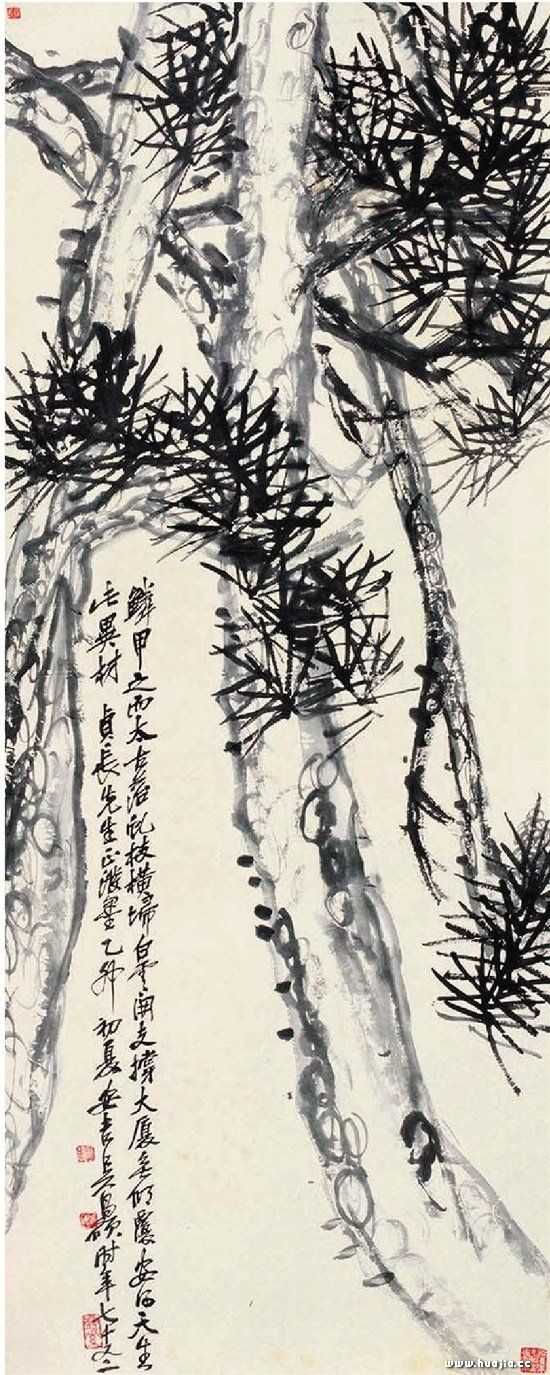 鱗甲之而太古苔乱枝橫掃白雲開支撐大厦無傾覆安得天生
此異材 貞長先生正潑墨 乙卯初夏 安吉吳昌碩时年七十又二
www.huajia.cc